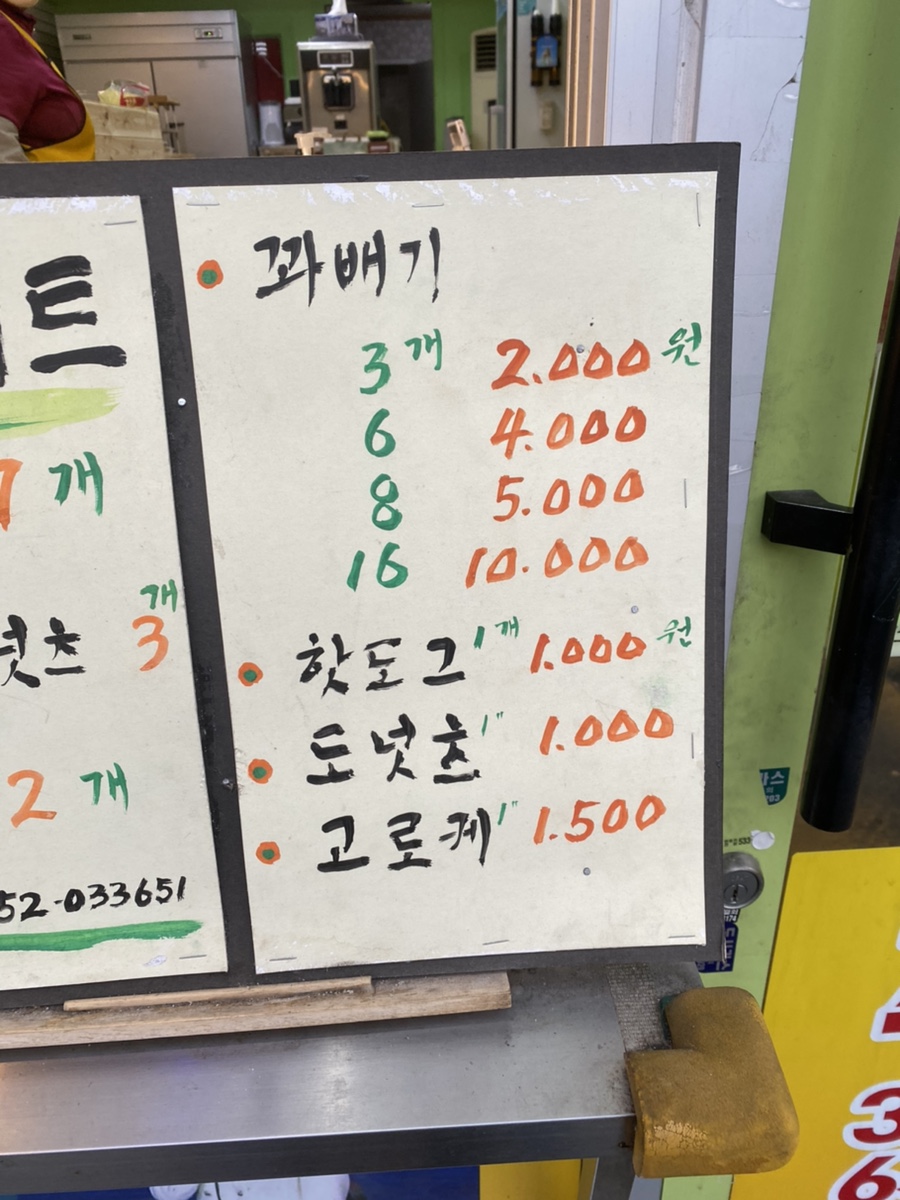 트
7개
넛츠 3개
2개
52-033651
꽈배기
3개 2.000원
6 4.000
8 5.000
16 10.000
핫도그 1개 1.000원
도넛츠 1" 1.000
고로케 1" 1.500
3
6